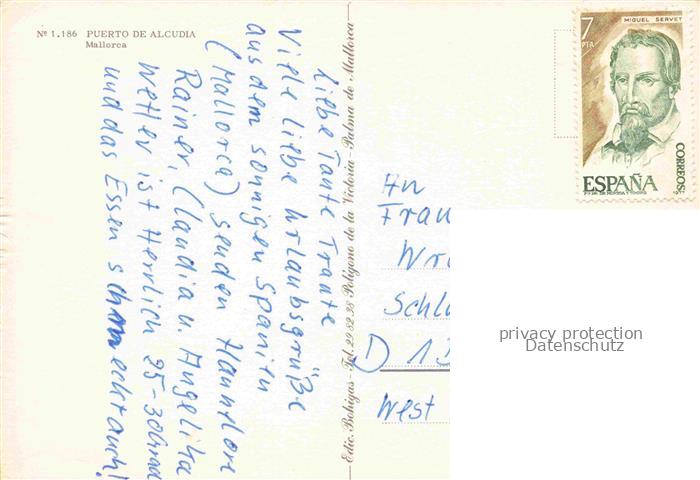 Nº 1.186 PUERTO DE ALCUDIA
Mallorca
Liebe Tante Traute
Viele liebe Urlaubsgrüße
aus dem sonnigen Spanien
(Mallorca) senden Hannelore
Rainer, Claudia u. Angelika
Wetter ist Herrlich 25-30Grad
und das Essen schmeckt auch!
Edic. Bohigas - Tel. 29 82 38 Polígono de la Victoria - Palma de Mallorca
7
PTA
MIGUEL SERVET
CORREOS
ESPAÑA
An
Frau
Wr
Schl
D 1
West
privacy protection
Datenschutz